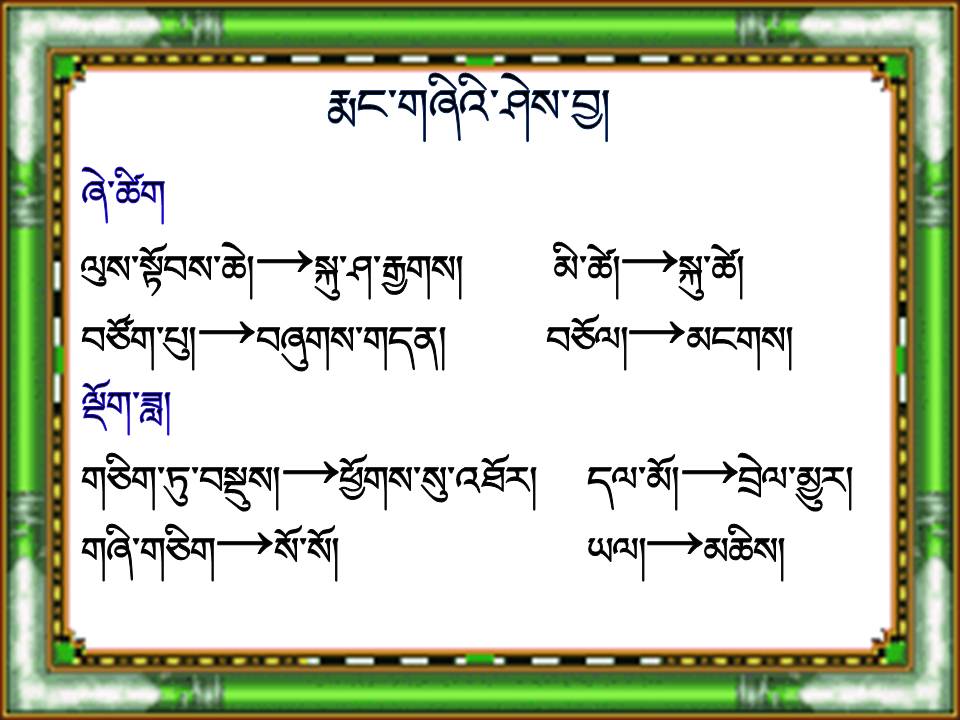 རྨང་གཞིའི་ཤེས་བྱ།
ཞེ་ཚིག
ལུས་སྟོབས་ཆེ།→སྐུ་ཤ་རྒྱགས། མི་ཚེ།→སྐུ་ཚེ།
བཙོག་པུ།→བཞུགས་གདན། བཅོལ།→མངགས།
ལྡོག་ཟླ།
གཅིག་ཏུ་བསྡུས།→ཕྱོགས་སུ་འཐོར། དལ་མོ།→བྲེལ་མྱུར།
གཞི་གཅིག→སོ་སོ། ཡལ།→མཆིས།